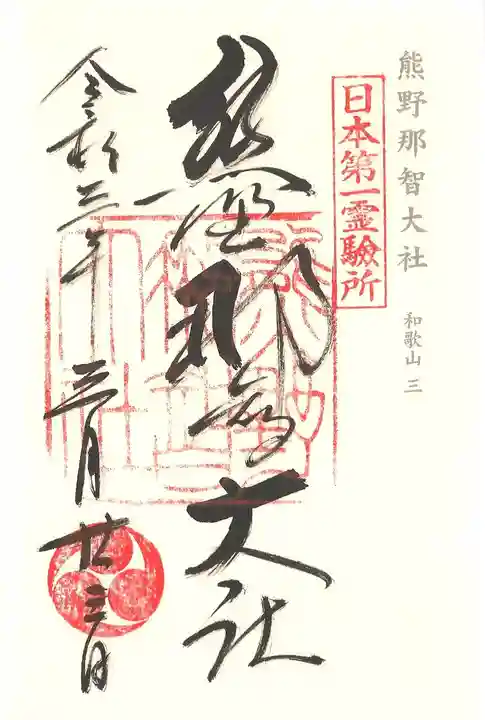 熊野那智大社 和歌山 三
日本第一霊驗所
熊野那智大社
令和三年 三月 廿三日